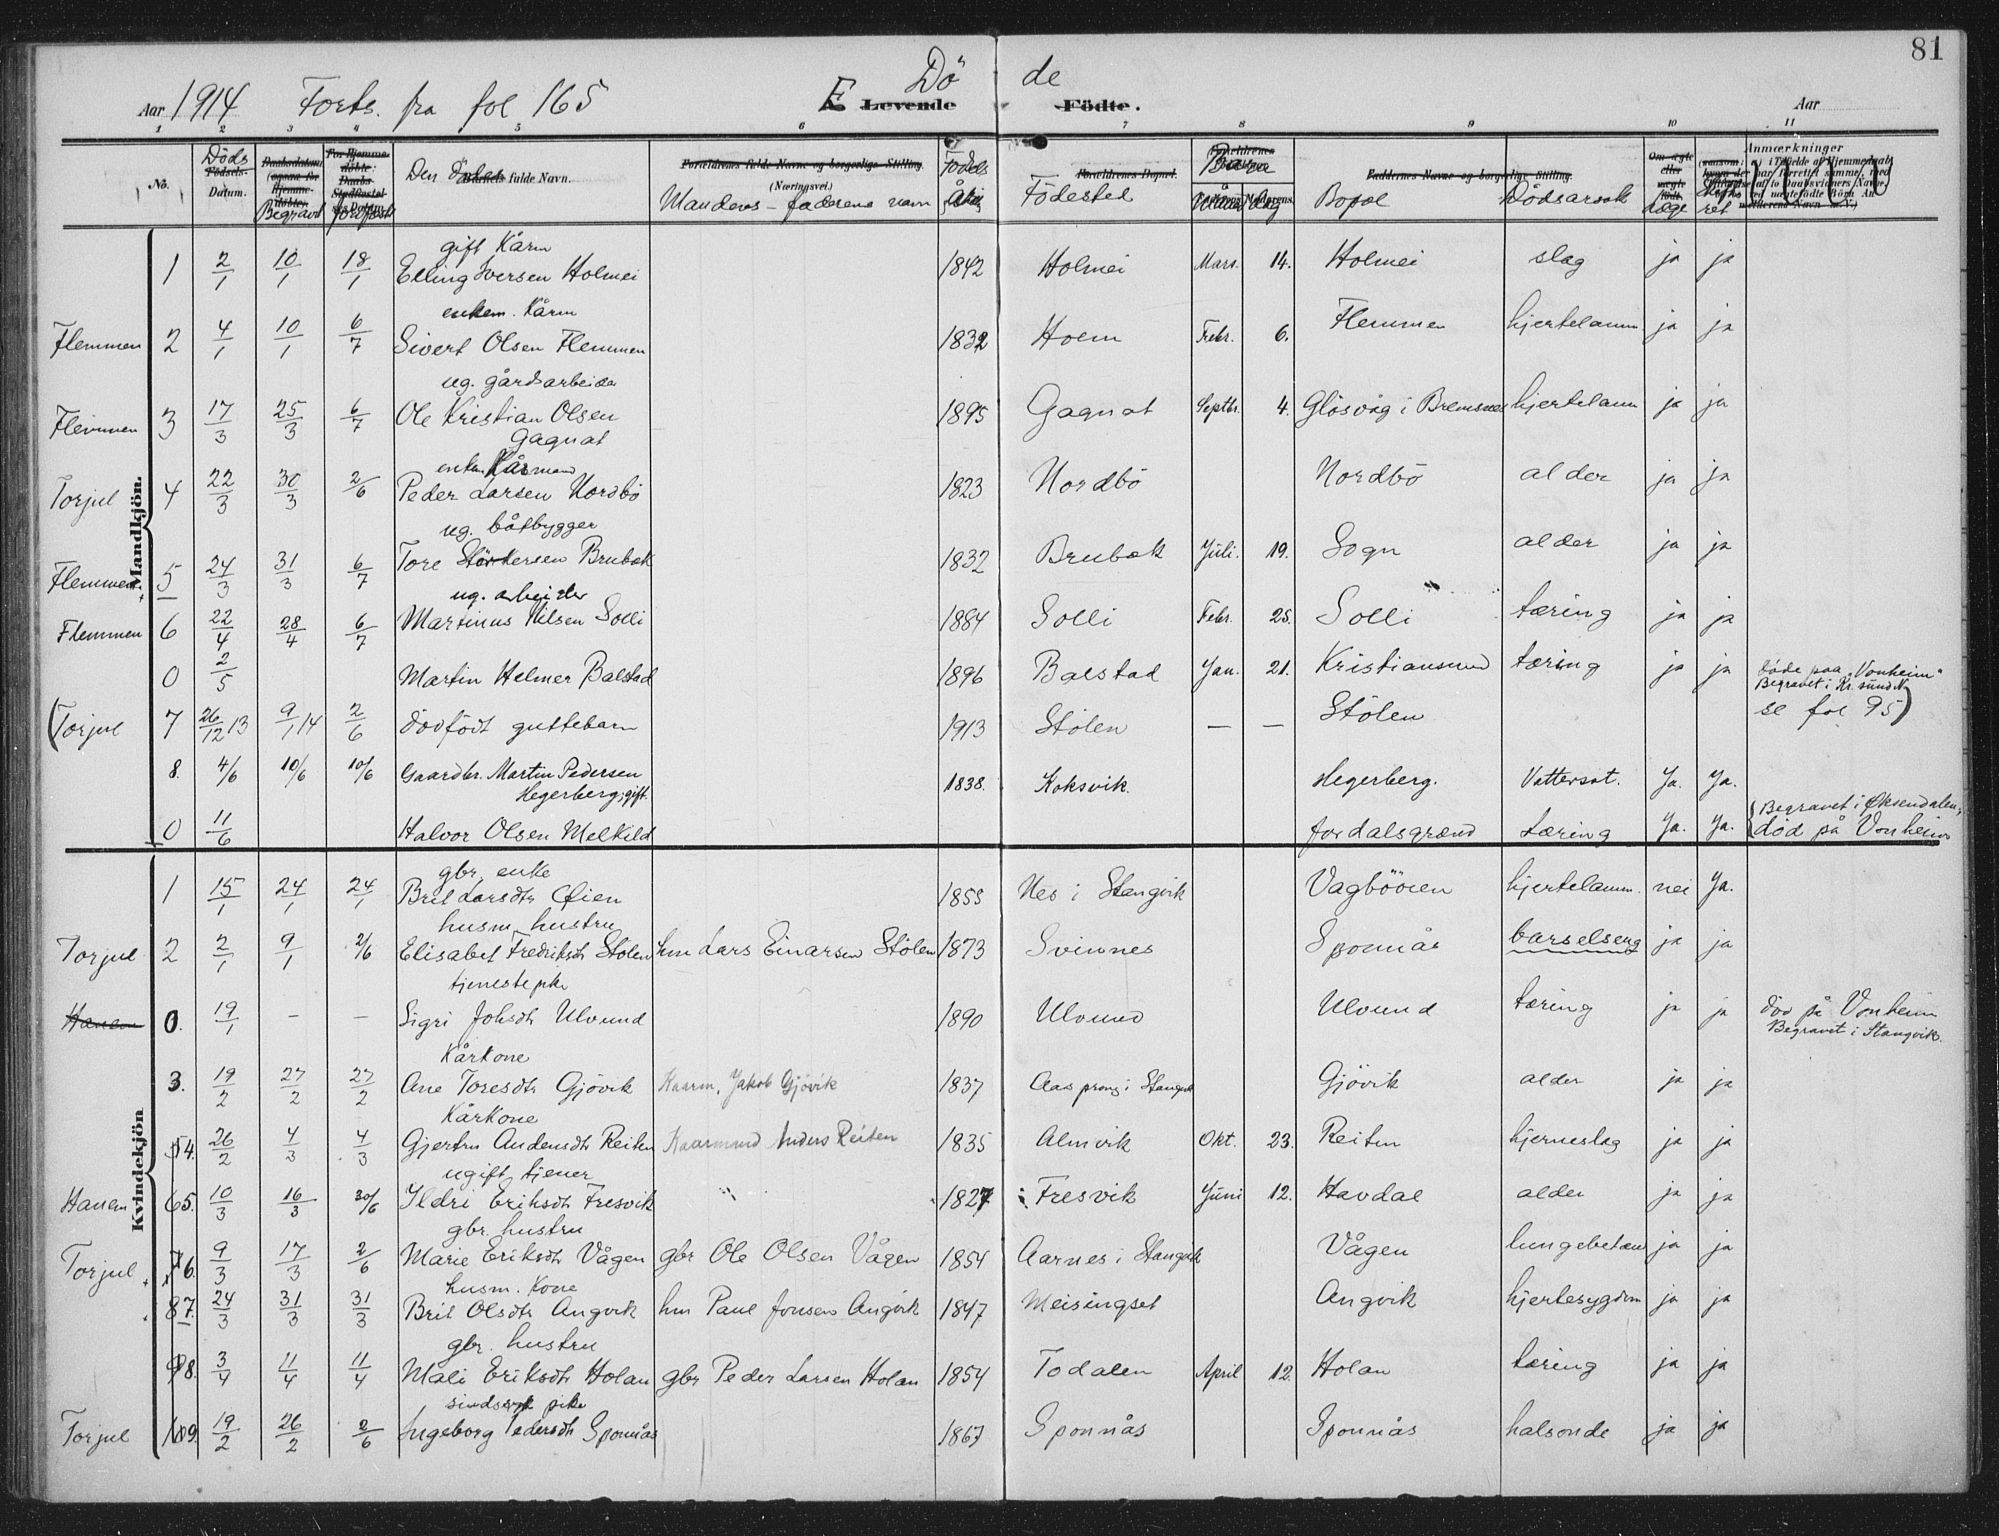 81
Dö de
Aar 1914 Forts. fra fol 165 E. Levende Födte. Aar
1 2 3 4 5 6 7 8 9 10 11
No. Döds Datum. Begravet Jordfæst Den dödes fulde Navn. (Næringsvei.) Mandens - faderens navn Födsels År Födested Måned Dag Bopæl Dödsårsak Læge Anmærkninger
Mandkjön.
gift Kårm
1 2/1 10/1 18/1 Elling Iversen Holmei 1842 Holmei Mars. 14. Holmei slag ja ja
enkem. Kårm
Flemmen 2 4/1 10/1 6/7 Sivert Olsen Flemmen 1832 Holm Febr. 6. Flemmen hjertelamm ja ja
ug. gårdsarbeider
Flemmen 3 17/3 25/3 6/7 Ole Kristian Olsen 1895 Gagnat Septbr. 4. Glösvåg i Bremsnes hjertelam ja ja
Gagnat
enkem Kårmand
Torjul 4 22/3 30/3 2/6 Peder Larsen Nordbö 1823 Nordbö Nordbö alder ja ja
ug. båtbygger
Flemmen 5 24/3 31/3 6/7 Tore Störkersen Brubæk 1832 Brubæk Juli. 19. Sogn alder ja ja
ug. arbeider
Flemmen 6 22/4 28/4 6/7 Martinus Nilsen Solli 1884 Solli Febr. 25. Solli tæring ja ja
0 2/5 Martin Helmer Balstad 1896 Balstad Jan. 21. Kristiansund tæring ja ja döde paa "Vonheim"
Begravet i Kr.sund N
(Torjul 7 26/12 13 9/1 14 2/6 dödfödt guttebarn 1913 Stölen — — Stölen se fol 95)
8. 4/6 10/6 10/6 Gaardbr. Martin Pedersen 1838. Koksvik. Hegerberg. Vattersot. Ja. Ja.
Hegerberg, gift.
0 11/6 Halvor Olsen Melkild Jordalsgrænd tæring Ja. Ja. Begravet i Øksendalen,
död på Vonheim
Kvindekjön
gbr. enke
1 15/1 24/1 24/1 Brit Larsdtr Øien 1855 Nes i Stangvik Vagbööien hjertelamm. nei Ja.
husm. hustru
Torjul 2 2/1 9/1 2/6 Elisabet Fredriksdt Stölen hm Lars Einarsen Stölen 1873 Svinnes Sponnås barselseng ja ja
tjenestepike
Hanem 0. 19/1 — — Sigri Johsdtr Ulvund 1890 Ulvund Ulvund tæring ja ja död på Vonheim
Begravet i Stangvik.
Kårkone
3. 19/2 27/2 27/2 Ane Toresdtr Gjövik Kaarm. Jakob Gjövik 1837 Aas i Stangvik Gjövik alder ja ja
Kårkone
4. 26/2 4/3 4/3 Gjertru Andersdtr Reiten Kaarmand Anders Reiten 1835 Almvik Okt. 23. Reiten hjerneslag ja ja
ugift tjener
Hanem 65. 10/3 16/3 30/6 Ildri Eriksdtr Fresvik 1827 Fresvik Juni 12. Havdal alder ja ja
gbr. hustru
Torjul 76. 9/3 17/3 2/6 Marie Eriksdtr Vågen gbr Ole Olsen Vågen 1854 Aarnes i Stangvik Vågen lungebetæn ja ja
husm. Kone
87. 24/3 31/3 31/3 Brit Olsdtr Angvik hm Paul Jonsen Angvik 1847 Meisingset Angvik hjertesygdom ja ja
gbr. hustru
98. 3/4 11/4 11/4 Mali Eriksdtr Holan gbr Peder Larsen Holan 1854 Todalen April 12. Holan tæring ja ja
sindssyk pike
Torjul 109. 19/2 26/2 2/6 Ingeborg Pedersdt Sponnås 1867 Sponnås Sponnås halsonde ja ja